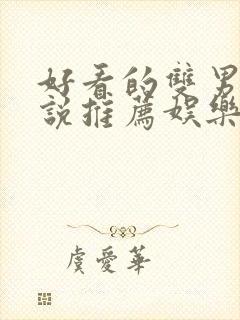 好看的雙男
說推薦娛樂
虞愛華